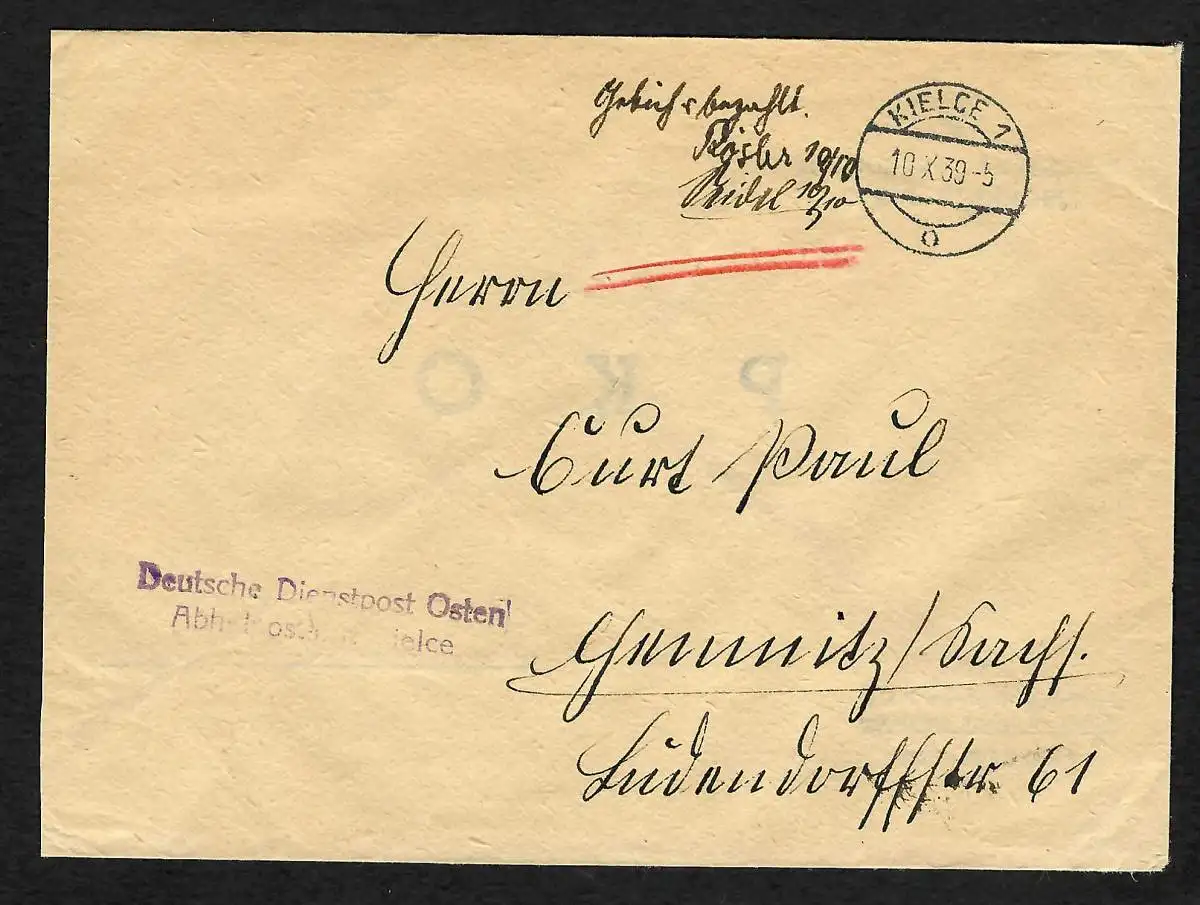 Gebüh r bezahlt.
Rösler 10/10
Seidel 10/10
KIELCE 1
10 X 39-5
a
Herrn
P K O
Curt Paul
Deutsche Dienstpost Osten
Kielce
Chemnitz/Sachs.
Ludendorffstr 61